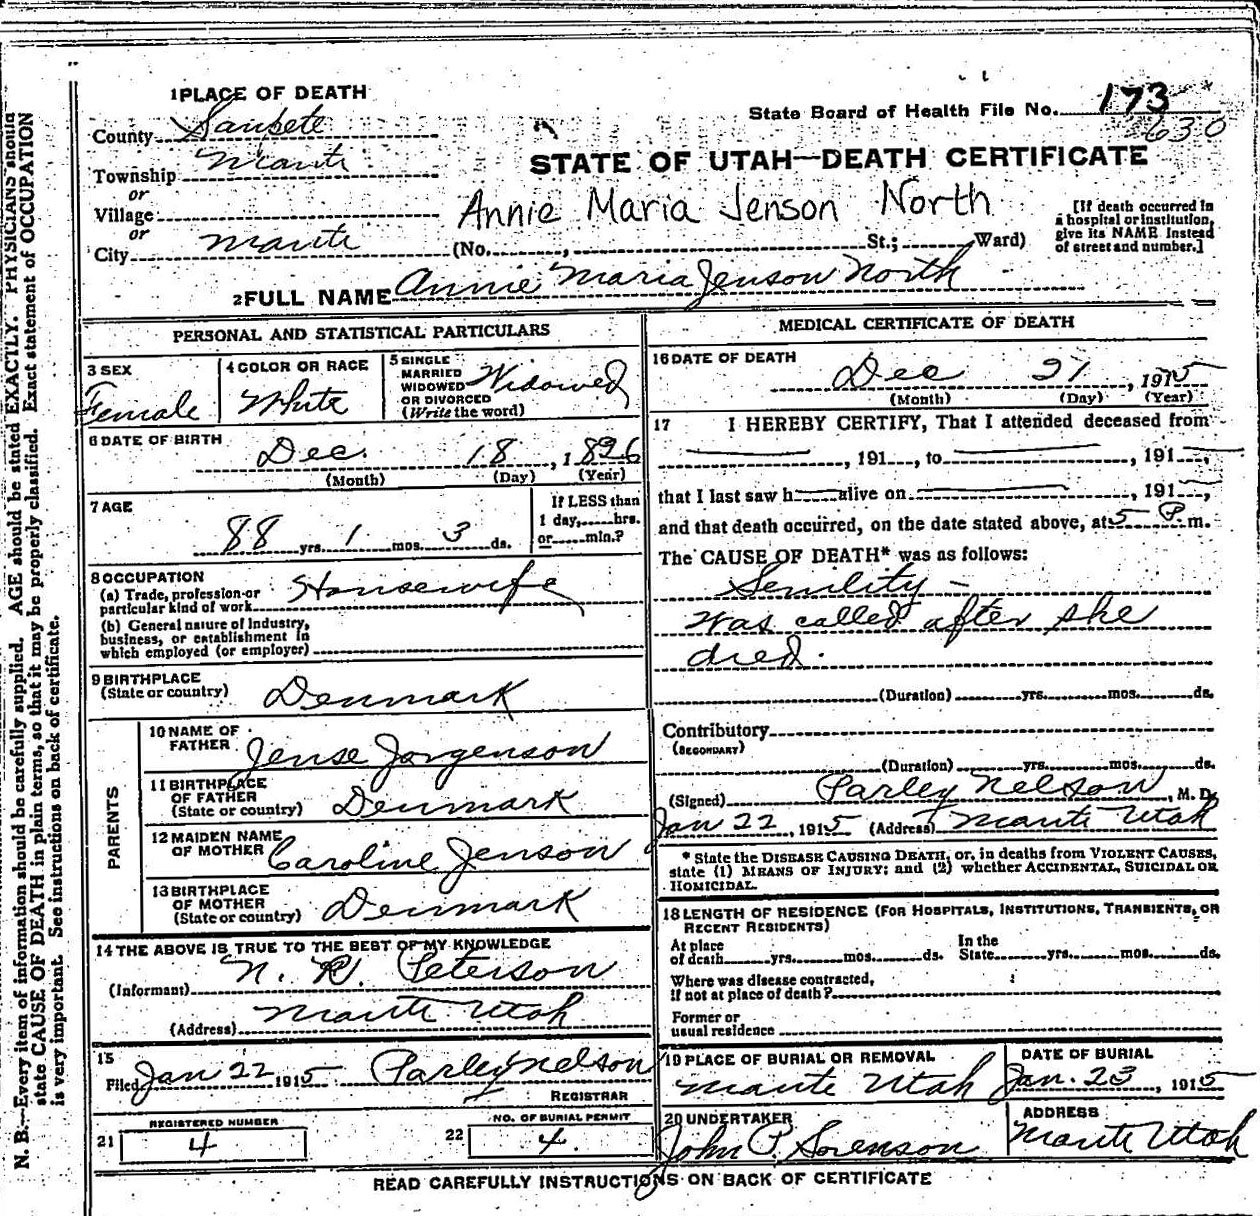 1 PLACE OF DEATH
County Sanpete
Township Manti
or
Village
or
City Manti
State Board of Health File No. 173
630
STATE OF UTAH—DEATH CERTIFICATE
Annie Maria Jenson North
(No. , St.; Ward)
[If death occurred in
a hospital or institution,
give its NAME instead
of street and number.]
2 FULL NAME Annie Maria Jenson North
PERSONAL AND STATISTICAL PARTICULARS
3 SEX
Female
4 COLOR OR RACE
White
5 SINGLE
MARRIED
WIDOWED
OR DIVORCED
(Write the word)
Widowed
6 DATE OF BIRTH
Dec. 18, 1826
(Month) (Day) (Year)
7 AGE
88 yrs. 1 mos. 3 ds.
If LESS than
1 day, hrs.
or min.?
8 OCCUPATION
(a) Trade, profession or
particular kind of work Housewife
(b) General nature of Industry,
business, or establishment in
which employed (or employer)
9 BIRTHPLACE
(State or country) Denmark
PARENTS
10 NAME OF
FATHER Jense Jorgenson
11 BIRTHPLACE
OF FATHER
(State or country) Denmark
12 MAIDEN NAME
OF MOTHER Caroline Jenson
13 BIRTHPLACE
OF MOTHER
(State or country) Denmark
14 THE ABOVE IS TRUE TO THE BEST OF MY KNOWLEDGE
(Informant) N. R. Peterson
(Address) Manti Utah
15
Filed Jan 22 1915 Parley Nelson
REGISTRAR
REGISTERED NUMBER
21 4
NO. OF BURIAL PERMIT
22 4.
MEDICAL CERTIFICATE OF DEATH
16 DATE OF DEATH
Dec 21, 1915
(Month) (Day) (Year)
17 I HEREBY CERTIFY, That I attended deceased from
, 191 , to , 191 ,
that I last saw h alive on , 191 ,
and that death occurred, on the date stated above, at 5 P. m.
The CAUSE OF DEATH* was as follows:
Senility -
Was called after she
died.
(Duration) yrs. mos. ds.
Contributory
(SECONDARY)
(Duration) yrs. mos. ds.
(Signed) Parley Nelson, M. D.
Jan 22, 1915 (Address) Manti Utah
* State the DISEASE CAUSING DEATH, or, in deaths from VIOLENT CAUSES,
state (1) MEANS OF INJURY; and (2) whether ACCIDENTAL, SUICIDAL OR
HOMICIDAL.
18 LENGTH OF RESIDENCE (FOR HOSPITALS, INSTITUTIONS, TRANSIENTS, OR
RECENT RESIDENTS)
At place
of death yrs. mos. ds.
In the
State yrs. mos. ds.
Where was disease contracted,
if not at place of death?
Former or
usual residence
19 PLACE OF BURIAL OR REMOVAL
Manti Utah
DATE OF BURIAL
Jan. 23, 1915
20 UNDERTAKER
John P. Sorenson
ADDRESS
Manti Utah
READ CAREFULLY INSTRUCTIONS ON BACK OF CERTIFICATE
N. B.—Every item of information should be carefully supplied. AGE should be stated EXACTLY. PHYSICIANS should
state CAUSE OF DEATH in plain terms, so that it may be properly classified. Exact statement of OCCUPATION
is very important. See instructions on back of certificate.